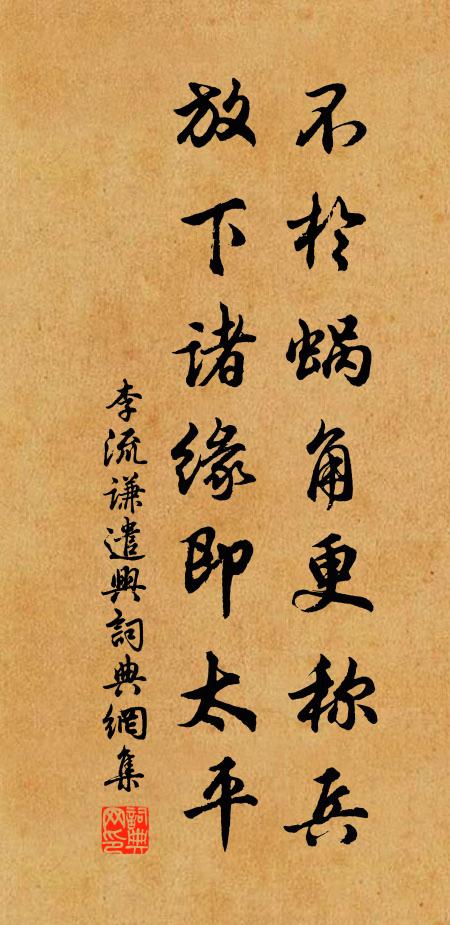 不於蝸角更称兵
放下诸缘即太平
李流谦遣興詞典網集
詞典网印